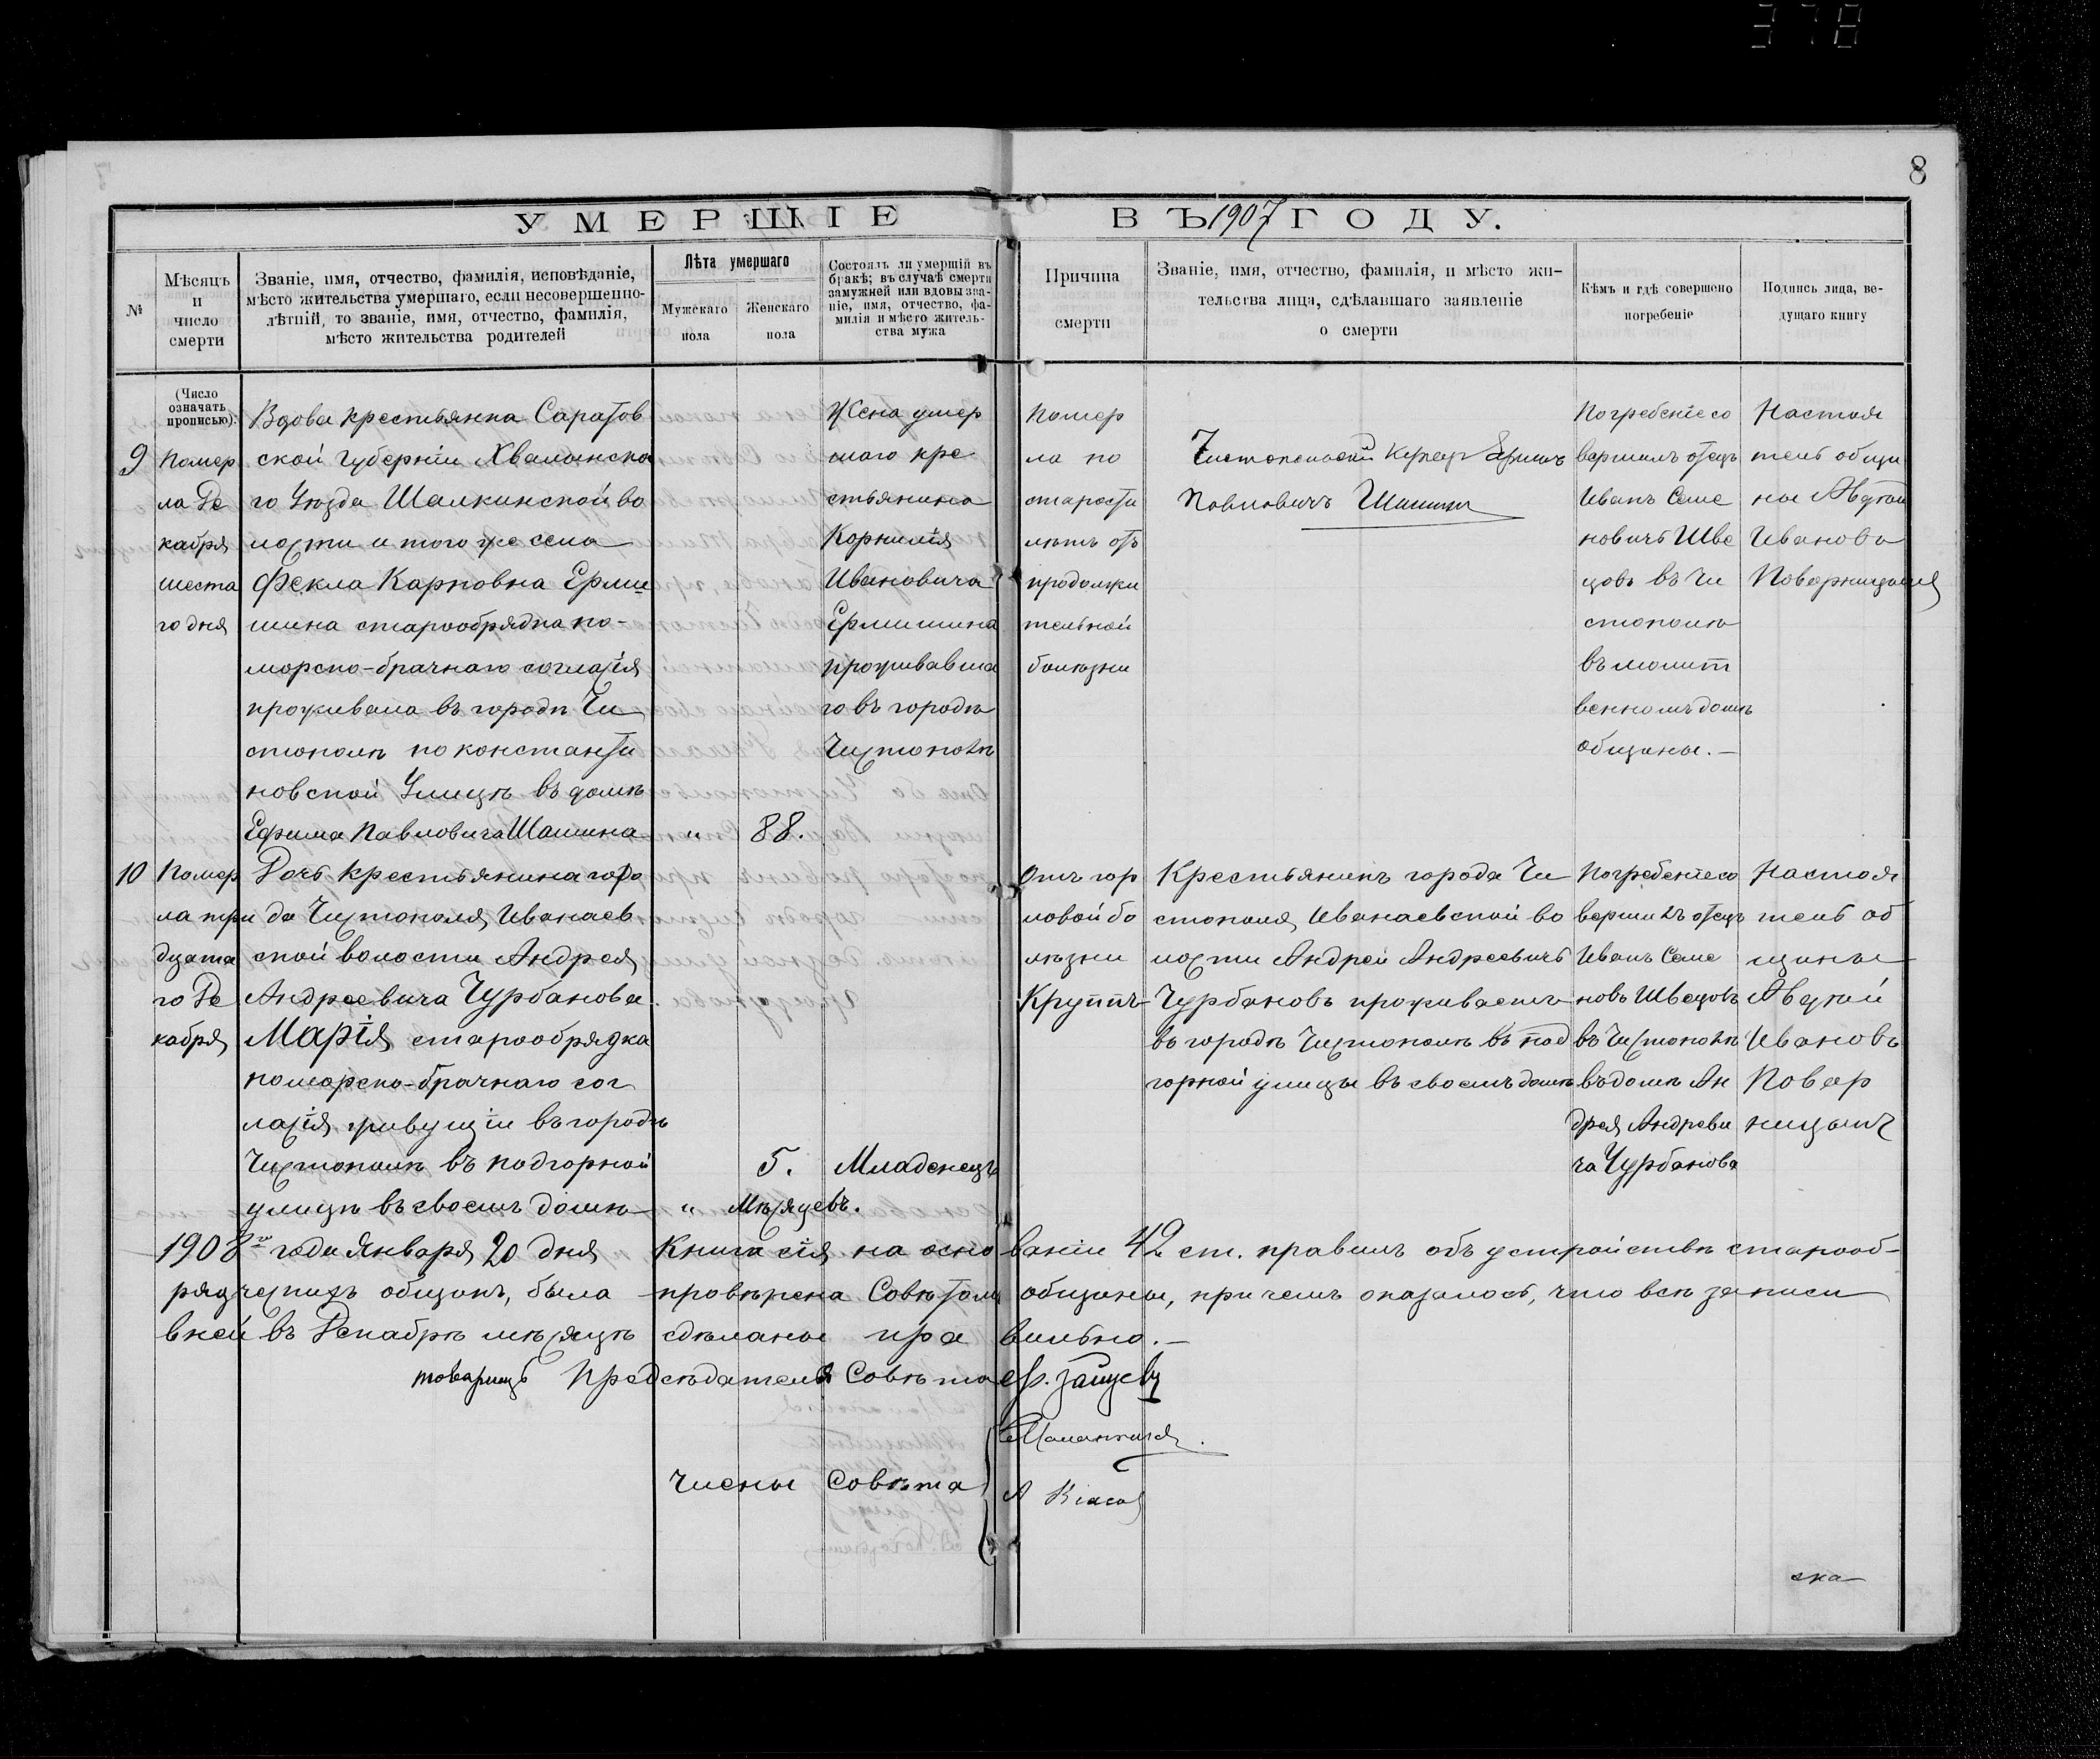 378
8
УМЕРШІЕ ВЪ 1907 ГОДУ.
№
Мѣсяцъ и число смерти
Званіе, имя, отчество, фамилія, исповѣданіе,
мѣсто жительства умершаго, если несовершенно-
лѣтній, то званіе, имя, отчество, фамилія,
мѣсто жительства родителей
Лѣта умершаго
Мужскаго пола
Женскаго пола
Состоялъ ли умершій въ
бракѣ; въ случаѣ смерти
замужней или вдовы зва-
ніе, имя, отчество, фа-
милія и мѣсто житель-
ства мужа
Причина
смерти
Званіе, имя, отчество, фамилія, и мѣсто жи-
тельства лица, сдѣлавшаго заявленіе
о смерти
Кѣмъ и гдѣ совершено
погребеніе
Подпись лица, ве-
дущаго книгу
(Число
означать
прописью).
9
Помер
ла Де
кабря
шеста
го дня
Вдова крестьянка Саратов
ской Губерніи Хвалынска
го Уѣзда Шалкинской во
лости и того же села
Фекла Карповна Ерми
шина старообрядка по-
морско-брачнаго согласія
проживала въ городѣ Чи
стополѣ по константи
новской Улицѣ въ домѣ
Ефима Павловича Шашина
"
88.
Жена умер
шаго кре
стьянина
Корнилія
Ивановича
Ермишина
проживавша
го въ городѣ
Чистополѣ
Помер
ла по
старости
лѣтъ отъ
продолжи
тельной
болѣзни
Чистопольскій Ефимъ
Павловичъ Шашинъ
Погребеніе со
вершилъ отецъ
Иванъ Семе
новичъ Шве
цовъ въ Чи
стополѣ
въ молит
венномъ домѣ
общины.
Настоя
тель общи
ны
Ивановъ
10
Помер
ла три
дцата
го Де
кабря
Дочь крестьянина горо
да Чистополя, Иванаев
ской волости Андрея
Андреевича Чурбанова
Марія, старообрядка
поморско-брачнаго сог
ласія, живущіи въ городѣ
Чистополѣ въ подгорной
улицѣ въ своемъ домѣ
"
5.
Мѣсяцевъ.
Младенецъ
Отъ гор
ловой бо
лѣзни
Круппъ
Крестьянинъ города Чи
стополя, Иванаевской во
лости Андрей Андреевичъ
Чурбановъ проживаетъ
въ городѣ Чистополѣ въ под
горной улицы въ своемъ домѣ
Погребеніе со
вершилъ отецъ
Иванъ Семе
новъ Швецовъ
въ Чистополѣ
въ домѣ Ан
дрея Андреви
ча Чурбанова
Настоя
тель об
щины
Ивановъ
1908го года Января 20 дня Книга сія на осно ваніи 42 ст. правилъ объ устройствѣ старооб-
рядческихъ общинъ, была провѣрена Совѣтомъ общины, при чемъ оказалось, что всѣ записи
въ ней въ Декабрѣ мѣсяцѣ сдѣланы пра вильно.
товарищъ Предсѣдателя Совѣта Зайцевъ
Члены Совѣта